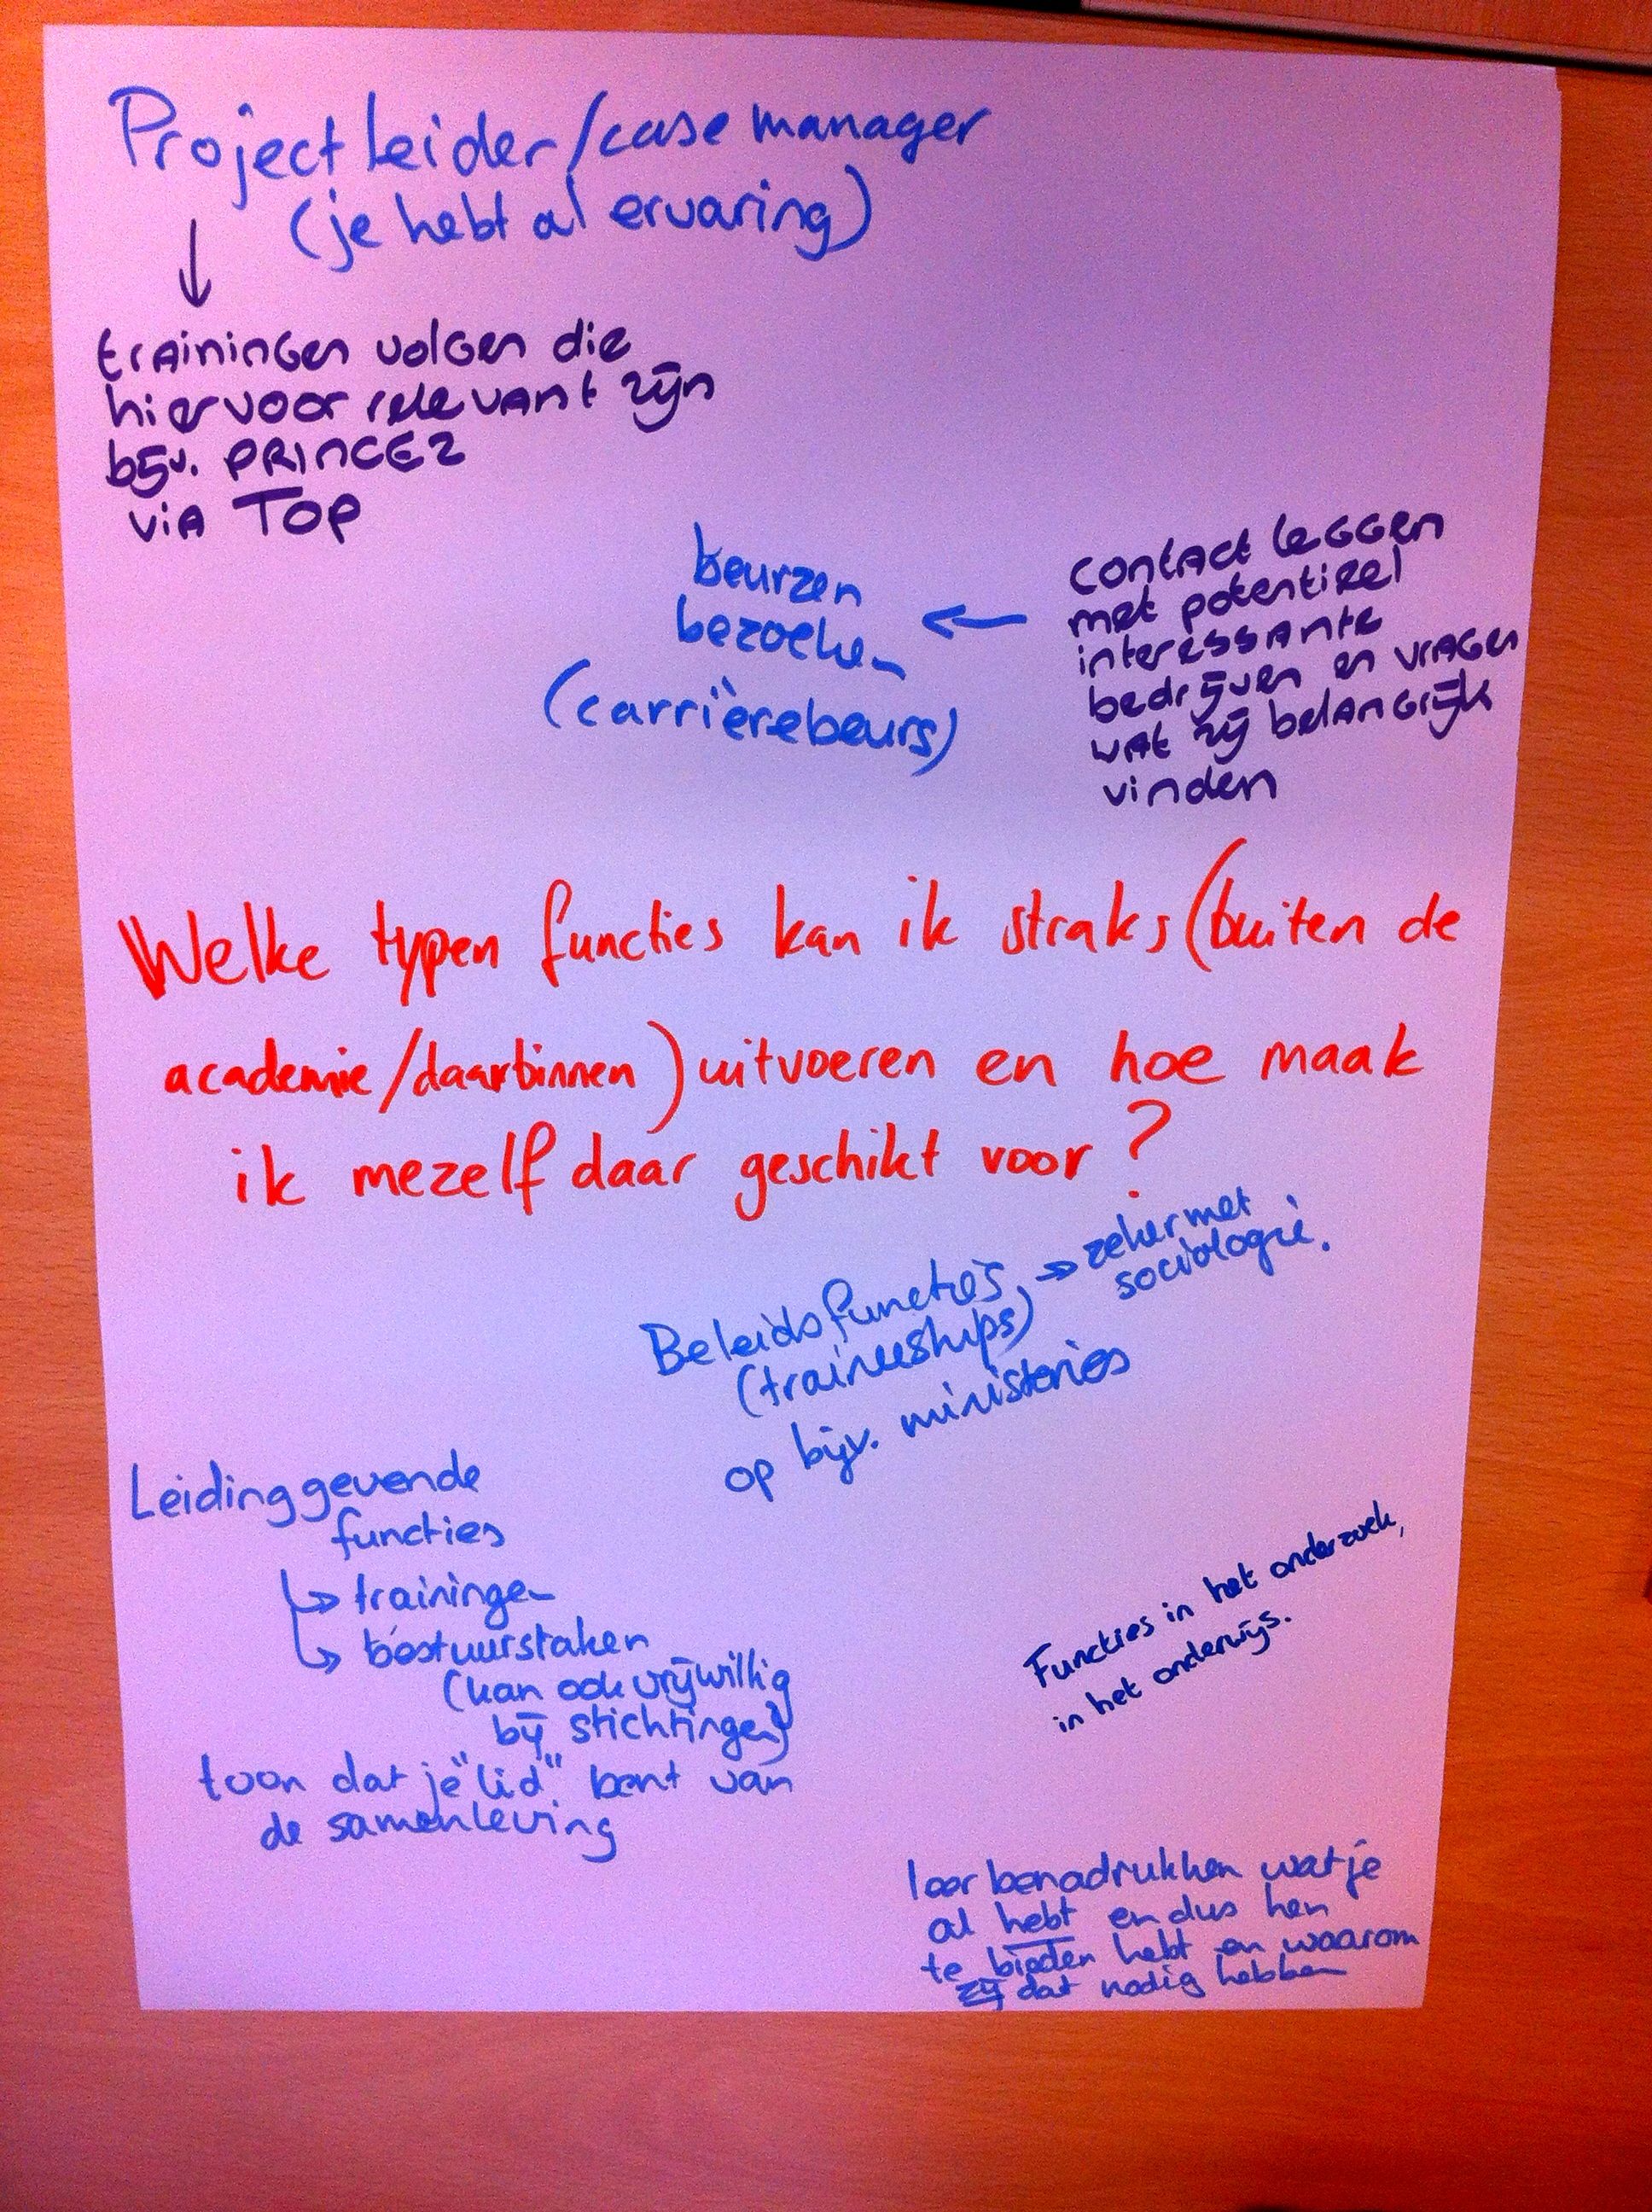 Projectleider/case manager
(je hebt al ervaring)
↓
trainingen volgen die
hiervoor relevant zijn
bijv. PRINCE2
via TOP
beurzen
bezoeken
(carrièrebeurs)
←
contact leggen
met potentieel
interessante
bedrijven en vragen
wat zij belangrijk
vinden
Welke typen functies kan ik straks (buiten de
academie/daarbinnen) uitvoeren en hoe maak
ik mezelf daar geschikt voor?
Beleidsfuncties → zeker met
sociologie.
(traineeships)
op bijv. ministeries
Leidinggevende
functies
↳ trainingen
↳ bestuurstaken
(kan ook vrijwillig
bij stichtingen)
toon dat je "lid" bent van
de samenleving
Functies in het onderzoek,
in het onderwijs.
leer benadrukken wat je
al hebt en dus hen
te bieden hebt en waarom
zij dat nodig hebben